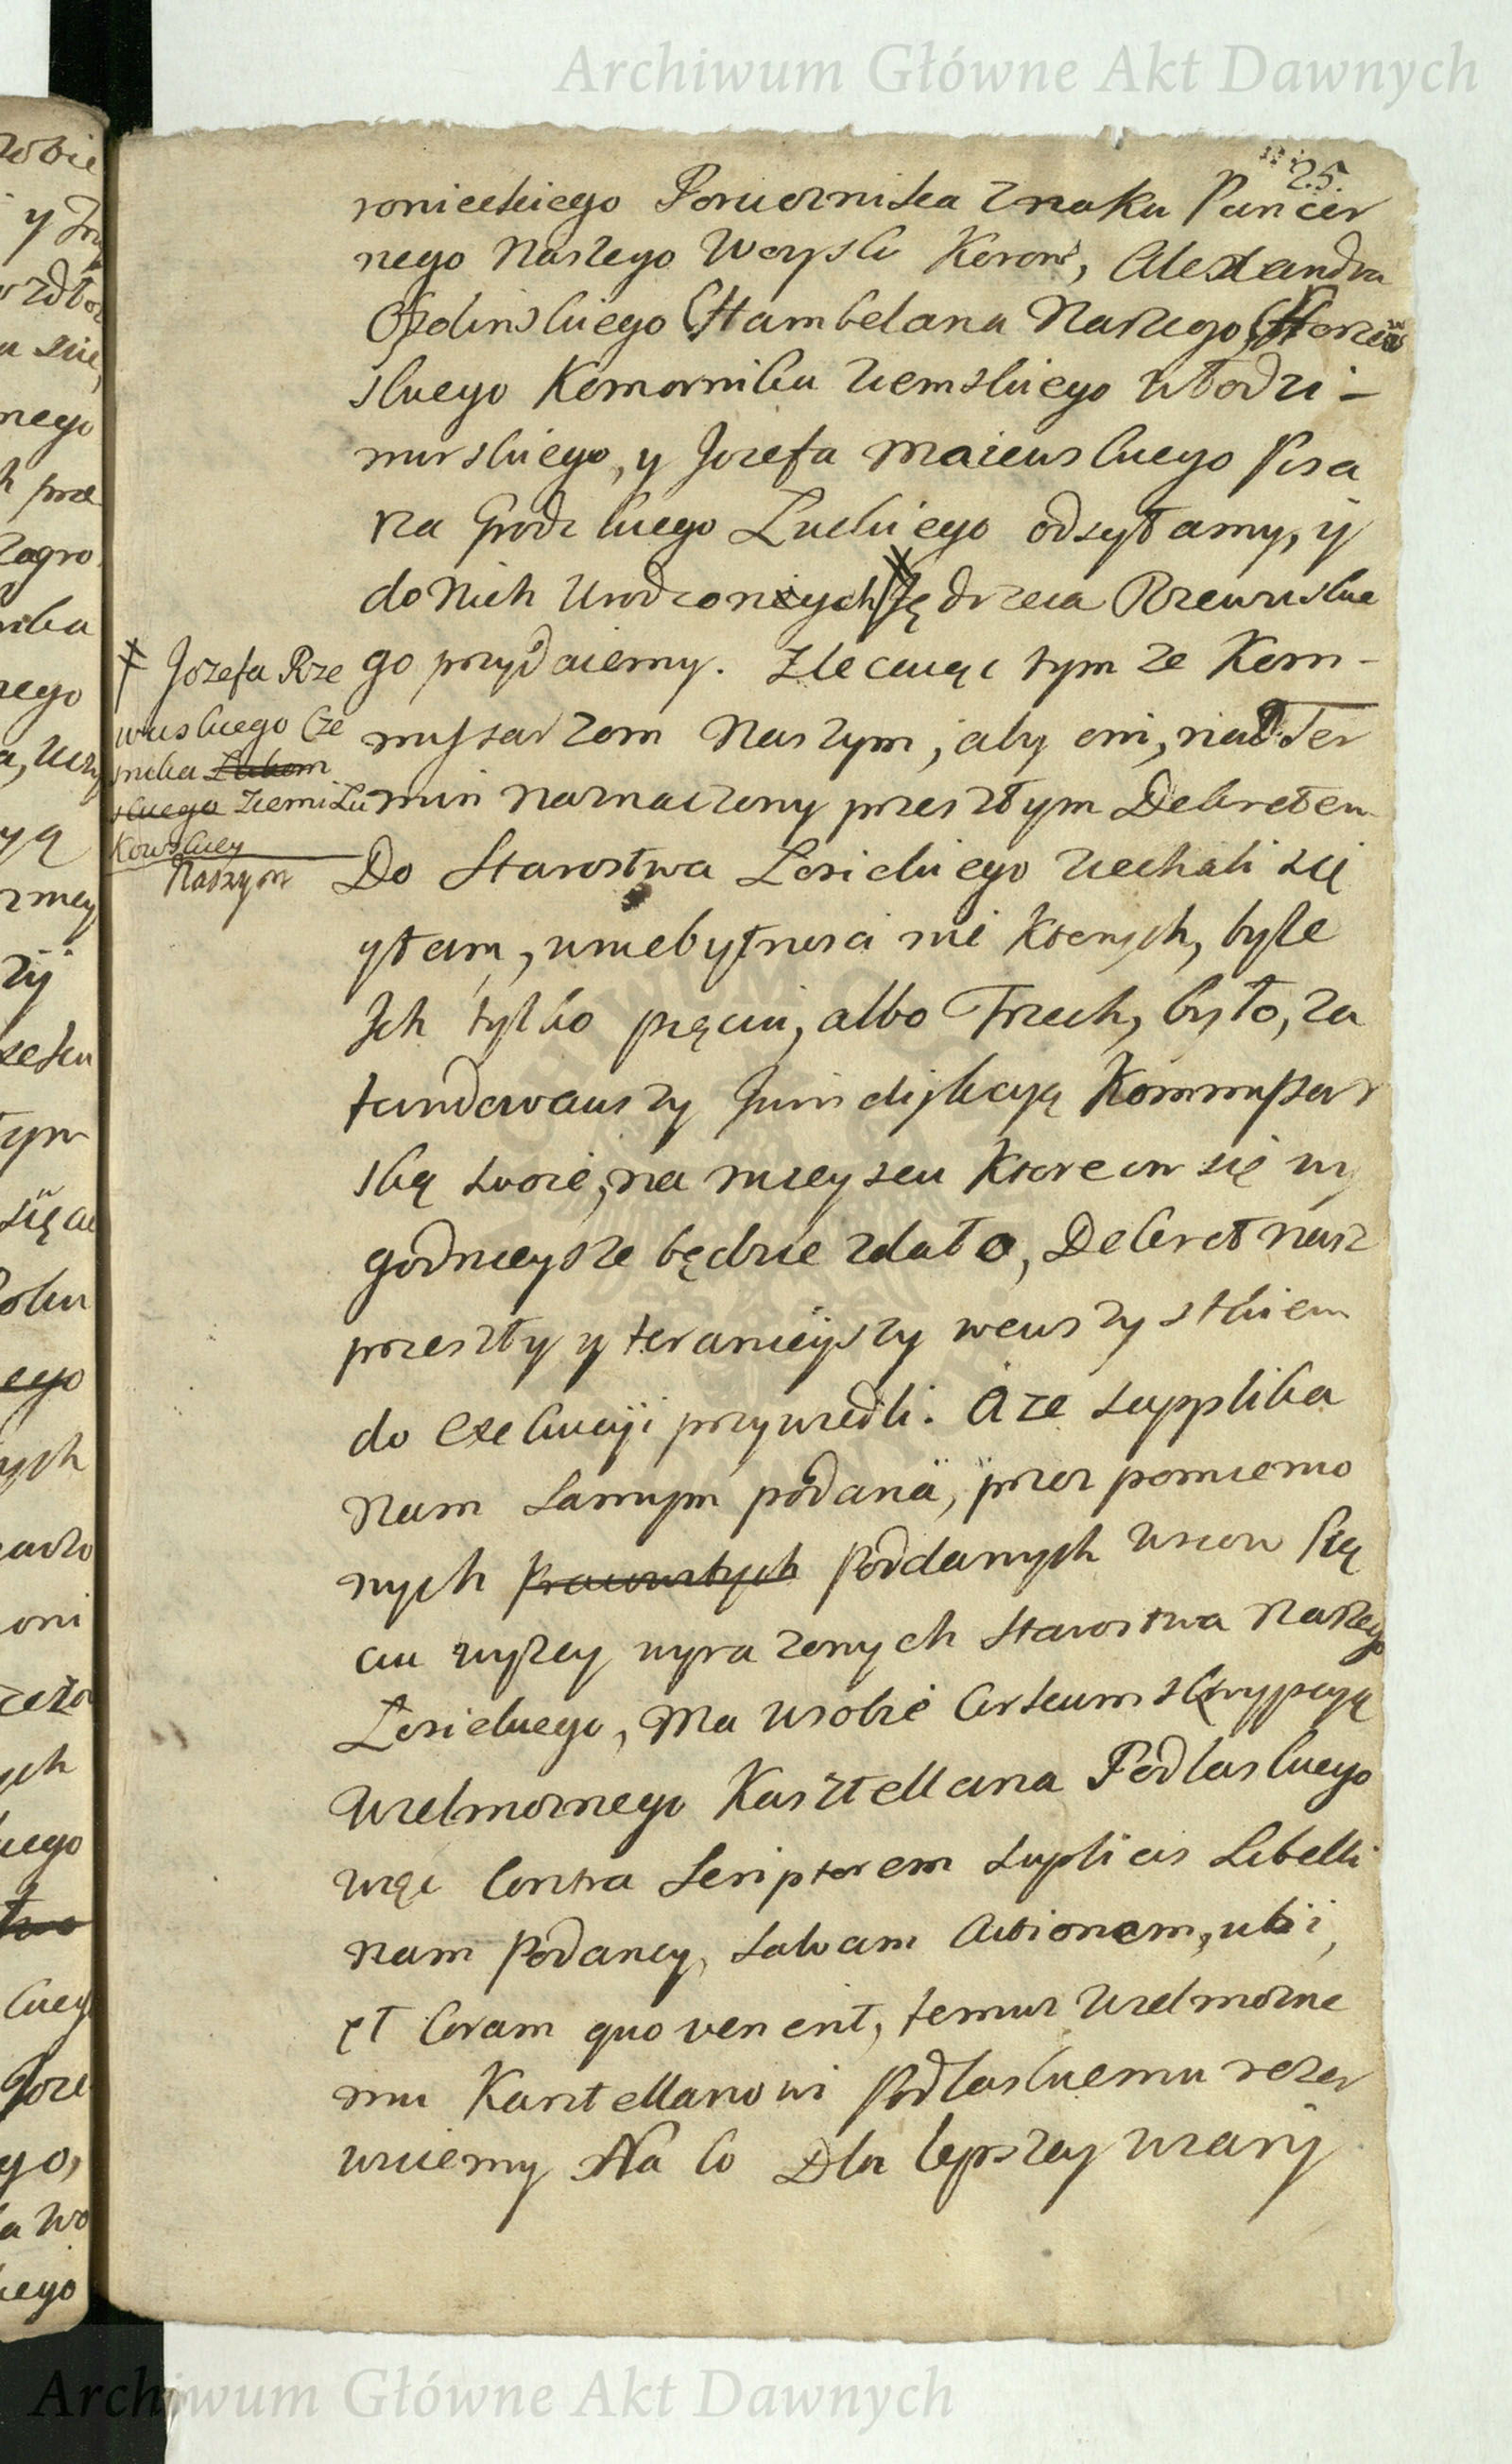 Archiwum Główne Akt Dawnych
25.
ronieckiego Porucznika Znaku Pancer
nego Naszego Woyska Koron, Alexandra
Szambelana Naszego,
skiego Komornika Ziemskiego Włodzi-
mirskiego, y Jozefa Maiewskiego Pisa
rza Grodzkiego Łuckiego odsyłamy, y
do Nich Urodzonych Jędrzeia Rzewuskie
go przydaiemy. Zlecaiąc tym ze Kom-
myssarzom Naszym, aby oni, na Ter
min naznaczony przeszłym Dekretem
Do Starostwa Łosickiego ziechali się
y tam, w niebytnosci nie ktorych, byle
Ich tylko pięciu, albo Trzech, było, za
fundowawszy Jurisdykcyą Kommyssar
ską swoię, na mieyscu Ktore im się wy
godnieysze będzie zdało, Dekret nasz
przeszły y teranieyszy we wszystkiem
do Exekucyi przywiedli. A ze supplika
Nam Samym podana, przez pomienio
nych Poddanych wsiow Pię
ciu wyzey wyrazonych Starostwa Naszego
Łosickiego, Ma w sobie Circumskrypcyą
Wielmoznego Kasztellana Podlaskiego
więc Contra Scriptorem suplicis Libelli
nam Podaney, salvam Actionem, ubi,
et Coram quo venerit, temuz Wielmozne
mu Kasztellanowi Podlaskiemu rezer
wuiemy Na Co Dla lepszey wiary
ǂ Jozefa Rze
wuskiego Cze
snika
skiego Ziemi Łu
kowskiey
Naszym
Archiwum Główne Akt Dawnych